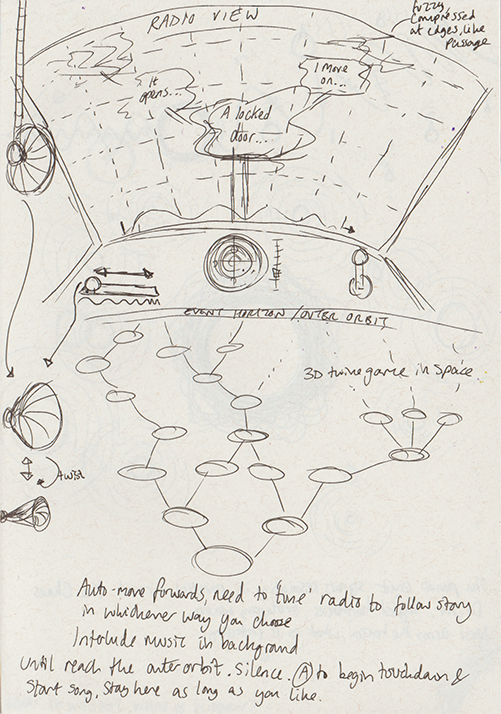 RADIO VIEW
fuzzy
compressed
at edges, like
passage
It
opens...
I move
on...
A locked
door...
EVENT HORIZON / OUTER ORBIT
3D twine game in space
twist
Auto-move forwards, need to 'tune' radio to follow story
in whichever way you choose
Interlude music in background
until reach the outer orbit. Silence. (A) to begin touchdown &
start song. Stay here as long as you like.